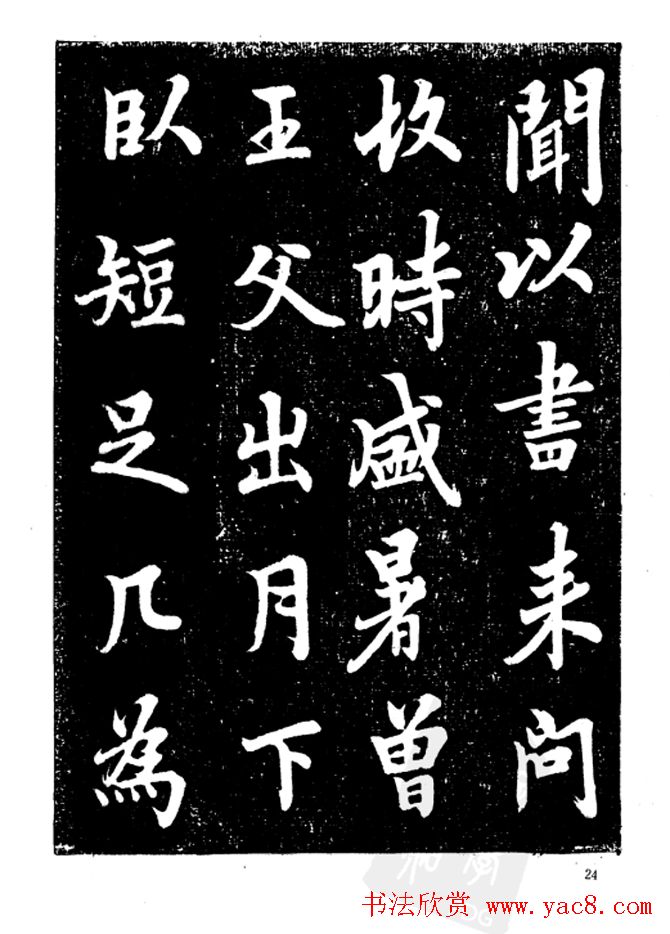 聞以書来問
故時盛暑曽
王父出月下
臥短足几為
24
书法欣赏 www.yac8.com